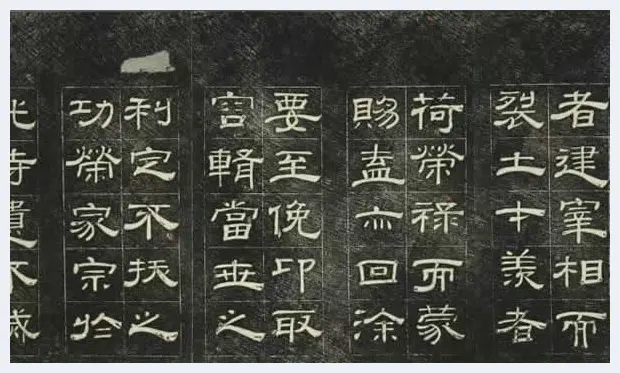 者建宰相而
裂土才羨者
荷榮祿而蒙
賜盍亦回涂
要至俛印取
當垂之
利定不扶之
功榮家宗於
寺遺不